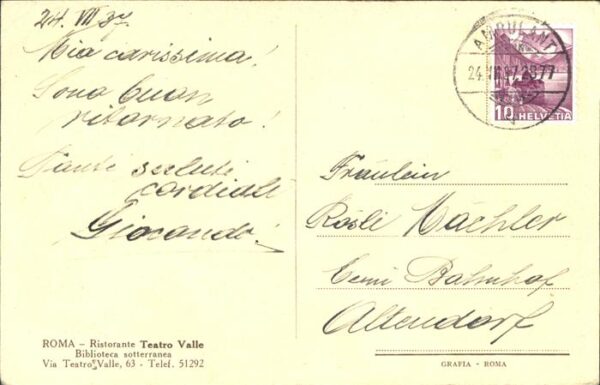 24. VII 37
Mia carissima!
Sono buon
ritornato!
Tanti saluti
cordiali
Giocondo!
AMBULANT
24. VII 37 2877
10 HELVETIA
Fräulein
Rösli Mächler
Bahnhof
Altendorf
ROMA – Ristorante Teatro Valle
Biblioteca sotterranea
Via Teatro Valle, 63 - Telef. 51292
GRAFIA - ROMA